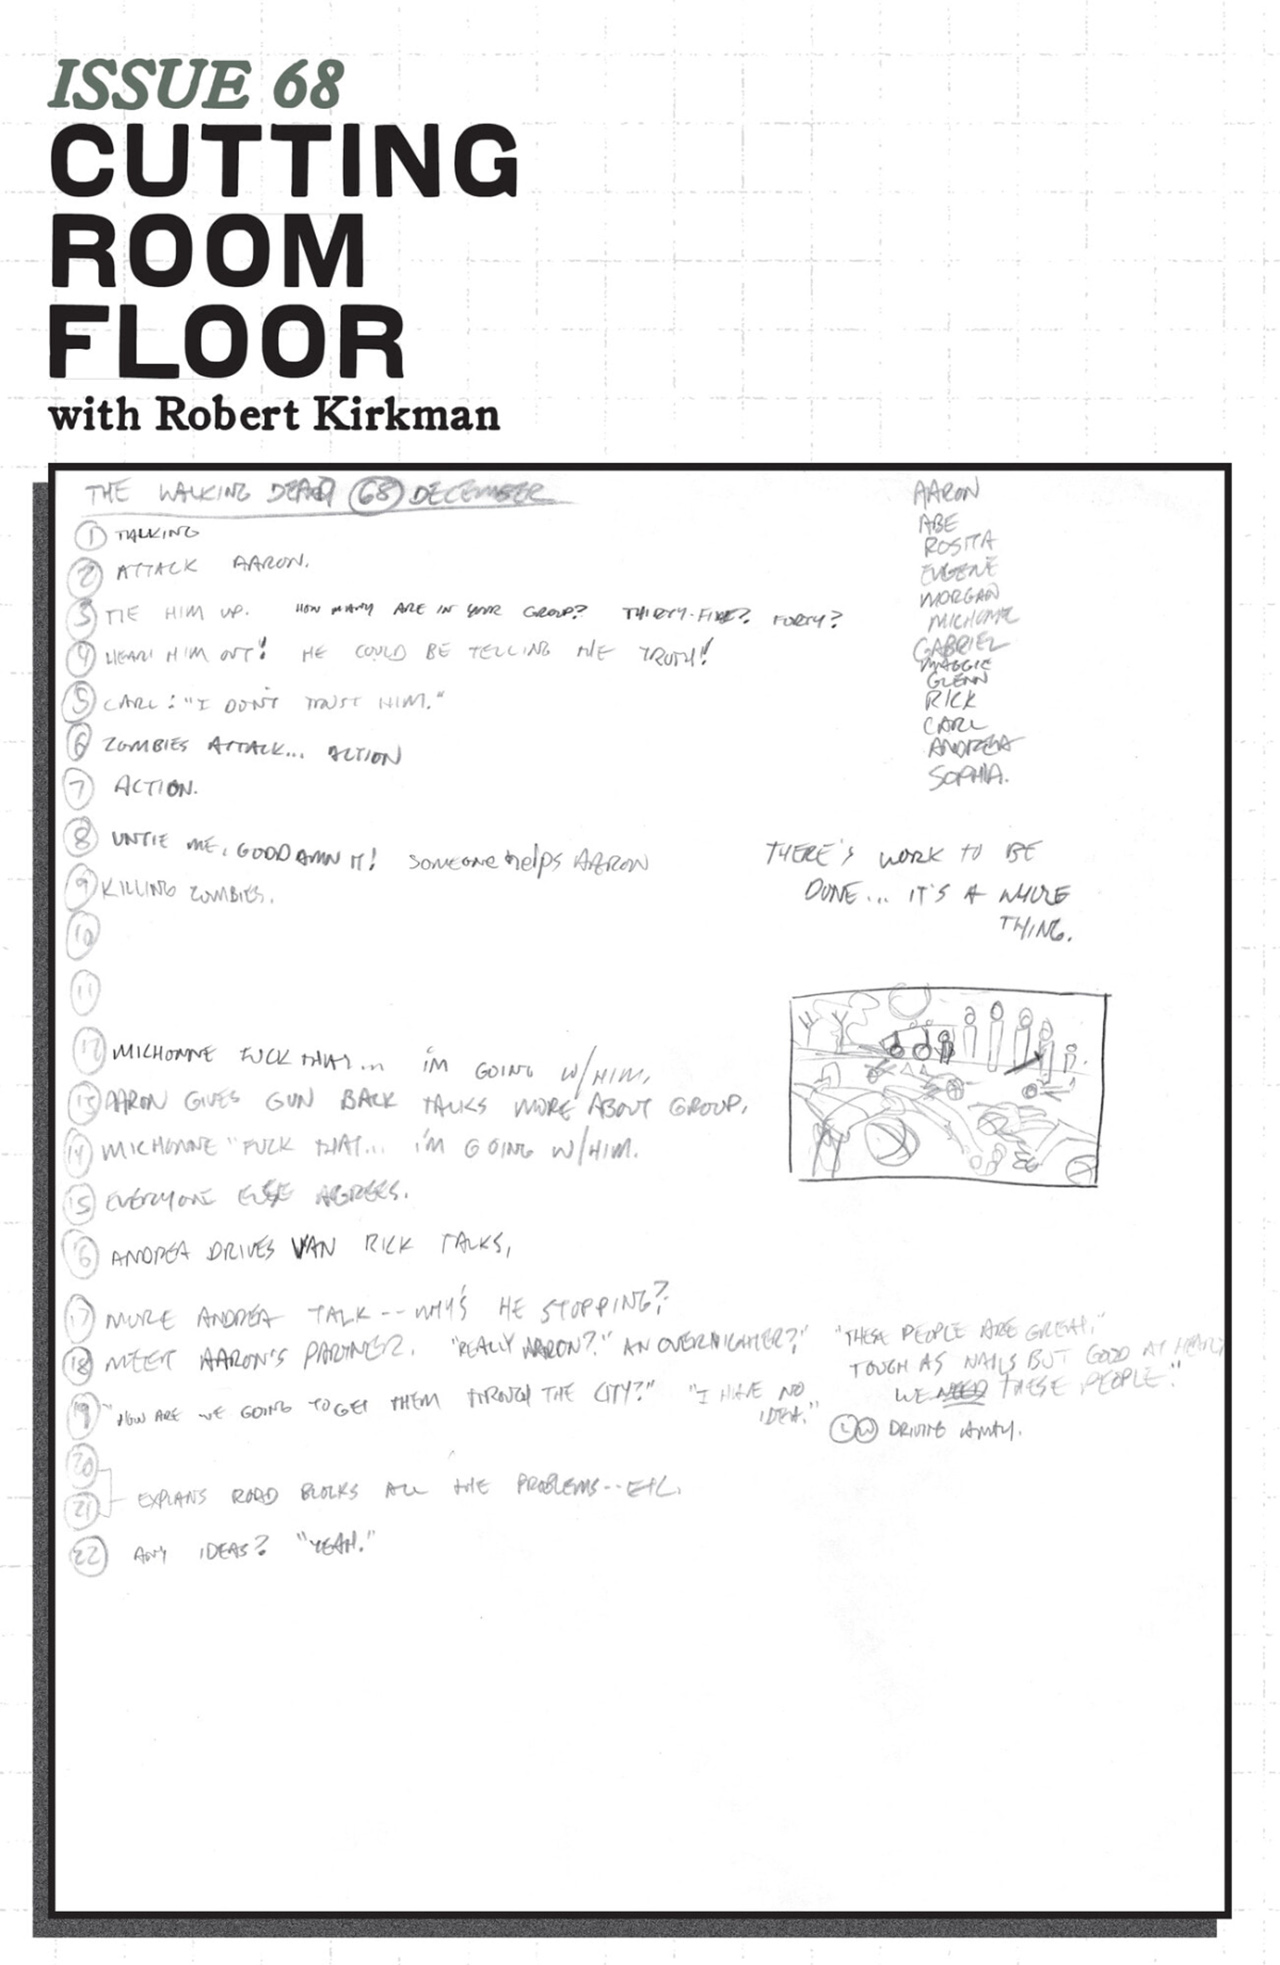 ISSUE 68
CUTTING
ROOM
FLOOR
with Robert Kirkman
THE WALKING DEAD 68 DECEMBER
1 TALKING
2 ATTACK AARON.
3 TIE HIM UP. HOW MANY ARE IN YOUR GROUP? THIRTY-FIVE? FORTY?
4 HEAR HIM OUT! HE COULD BE TELLING THE TRUTH!
5 CARL: "I DON'T TRUST HIM."
6 ZOMBIES ATTACK... ACTION
7 ACTION.
8 UNTIE ME, GODDAMN IT! SOMEONE helps AARON
9 KILLING ZOMBIES.
10
11
12 MICHONNE FUCK THAT... I'M GOING W/HIM.
13 AARON GIVES GUN BACK TALKS MORE ABOUT GROUP.
14 MICHONNE "FUCK THAT... I'M GOING W/HIM.
15 EVERYONE ELSE AGREES.
16 ANDREA DRIVES VAN RICK TALKS,
17 MORE ANDREA TALK -- WHY'S HE STOPPING?
18 MEET AARON'S PARTNER. "REALLY AARON?" AN OVERNIGHTER?"
19 "HOW ARE WE GOING TO GET THEM THROUGH THE CITY?" "I HAVE NO
IDEA."
20
21 EXPLANS ROAD BLOCKS ALL THE PROBLEMS -- ETC.
22 ANY IDEAS? "YEAH."
AARON
ABE
ROSITA
EUGENE
MORGAN
MICHONNE
GABRIEL
MAGGIE
GLENN
RICK
CARL
ANDREA
SOPHIA.
THERE'S WORK TO BE
DONE... IT'S A WHOLE
THING.
"THESE PEOPLE ARE GREAT."
TOUGH AS NAILS BUT GOOD AT HEART
WE NEED THESE PEOPLE."
DRIVING AWAY.